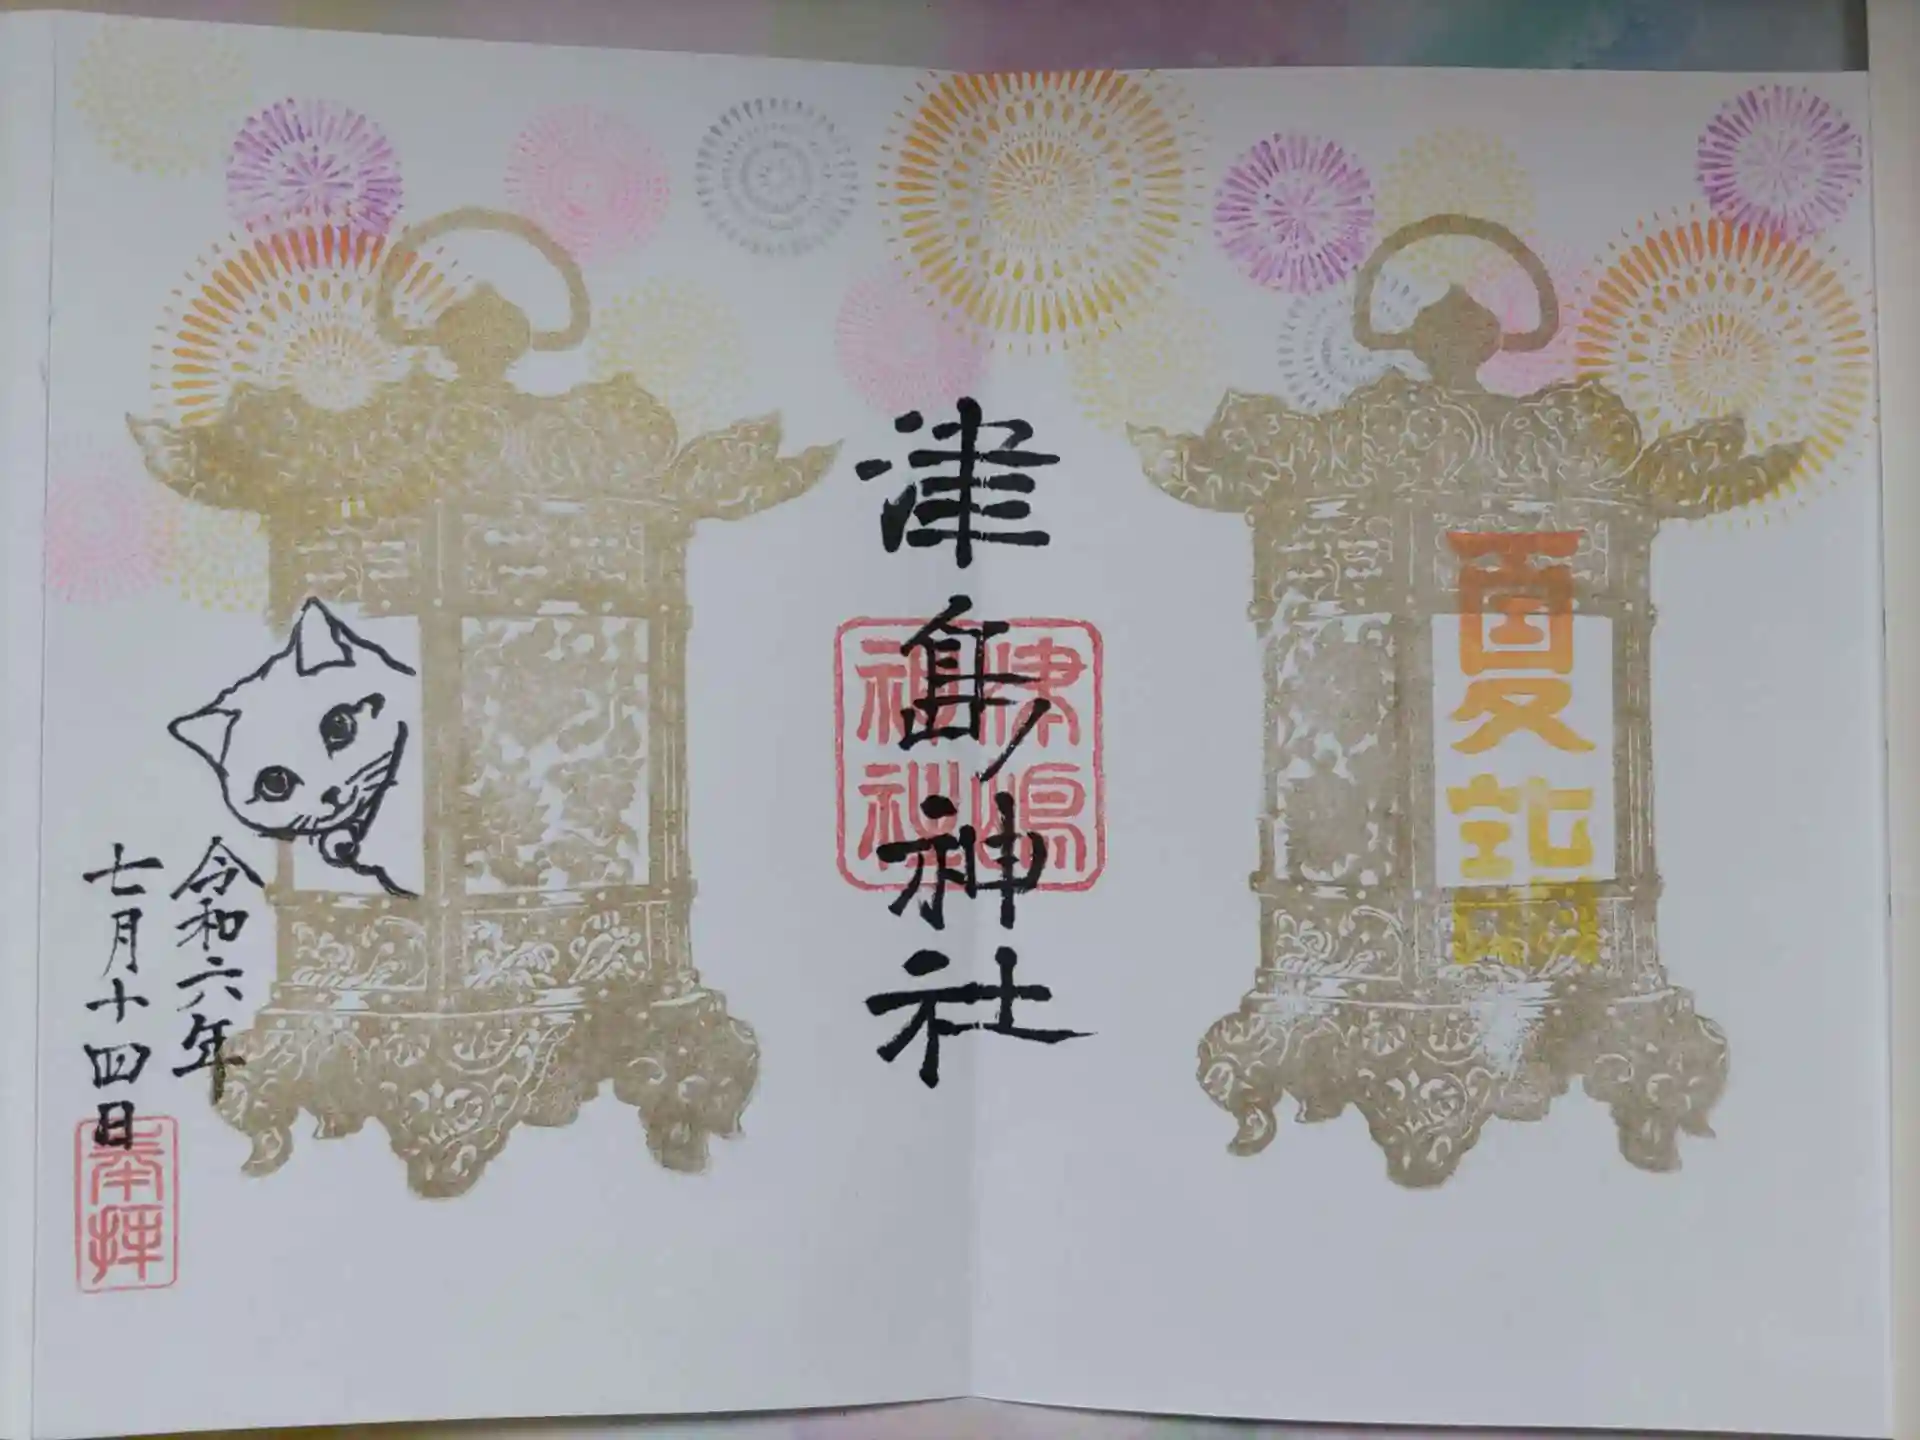 夏詣
津島神社
津島神社
令和六年
七月十四日
奉拝